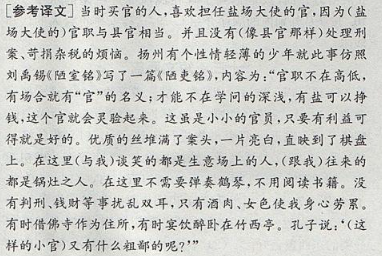 [参考译文] 当时买官的人,喜欢担任盐场大使的官,因为(盐
场大使的)官职与县官相当。并且没有(像县官那样)处理刑
案、苛捐杂税的烦恼。扬州有个性情轻薄的少年就此事仿照
刘禹锡《陋室铭》写了一篇《陋吏铭》,内容为:“官职不在高低,
有场合就有“官”的名义;才能不在学问的深浅,有盐可以挣
钱,这个官就会灵验起来。这虽是小小的官员,只要有利益可
得就是好的。优质的丝堆满了案头,一片亮白,直映到了棋盘
上。在这里(与我)谈笑的都是生意场上的人,(跟我)往来的
都是锅灶之人。在这里不需要弹奏鹤琴,不用阅读书籍。没
有判刑、钱财等事扰乱双耳,只有酒肉、女色使我身心劳累。
有时借佛寺作为住所,有时宴饮醉卧在竹西亭。孔子说:‘(这
样的小官)又有什么粗鄙的呢?’”